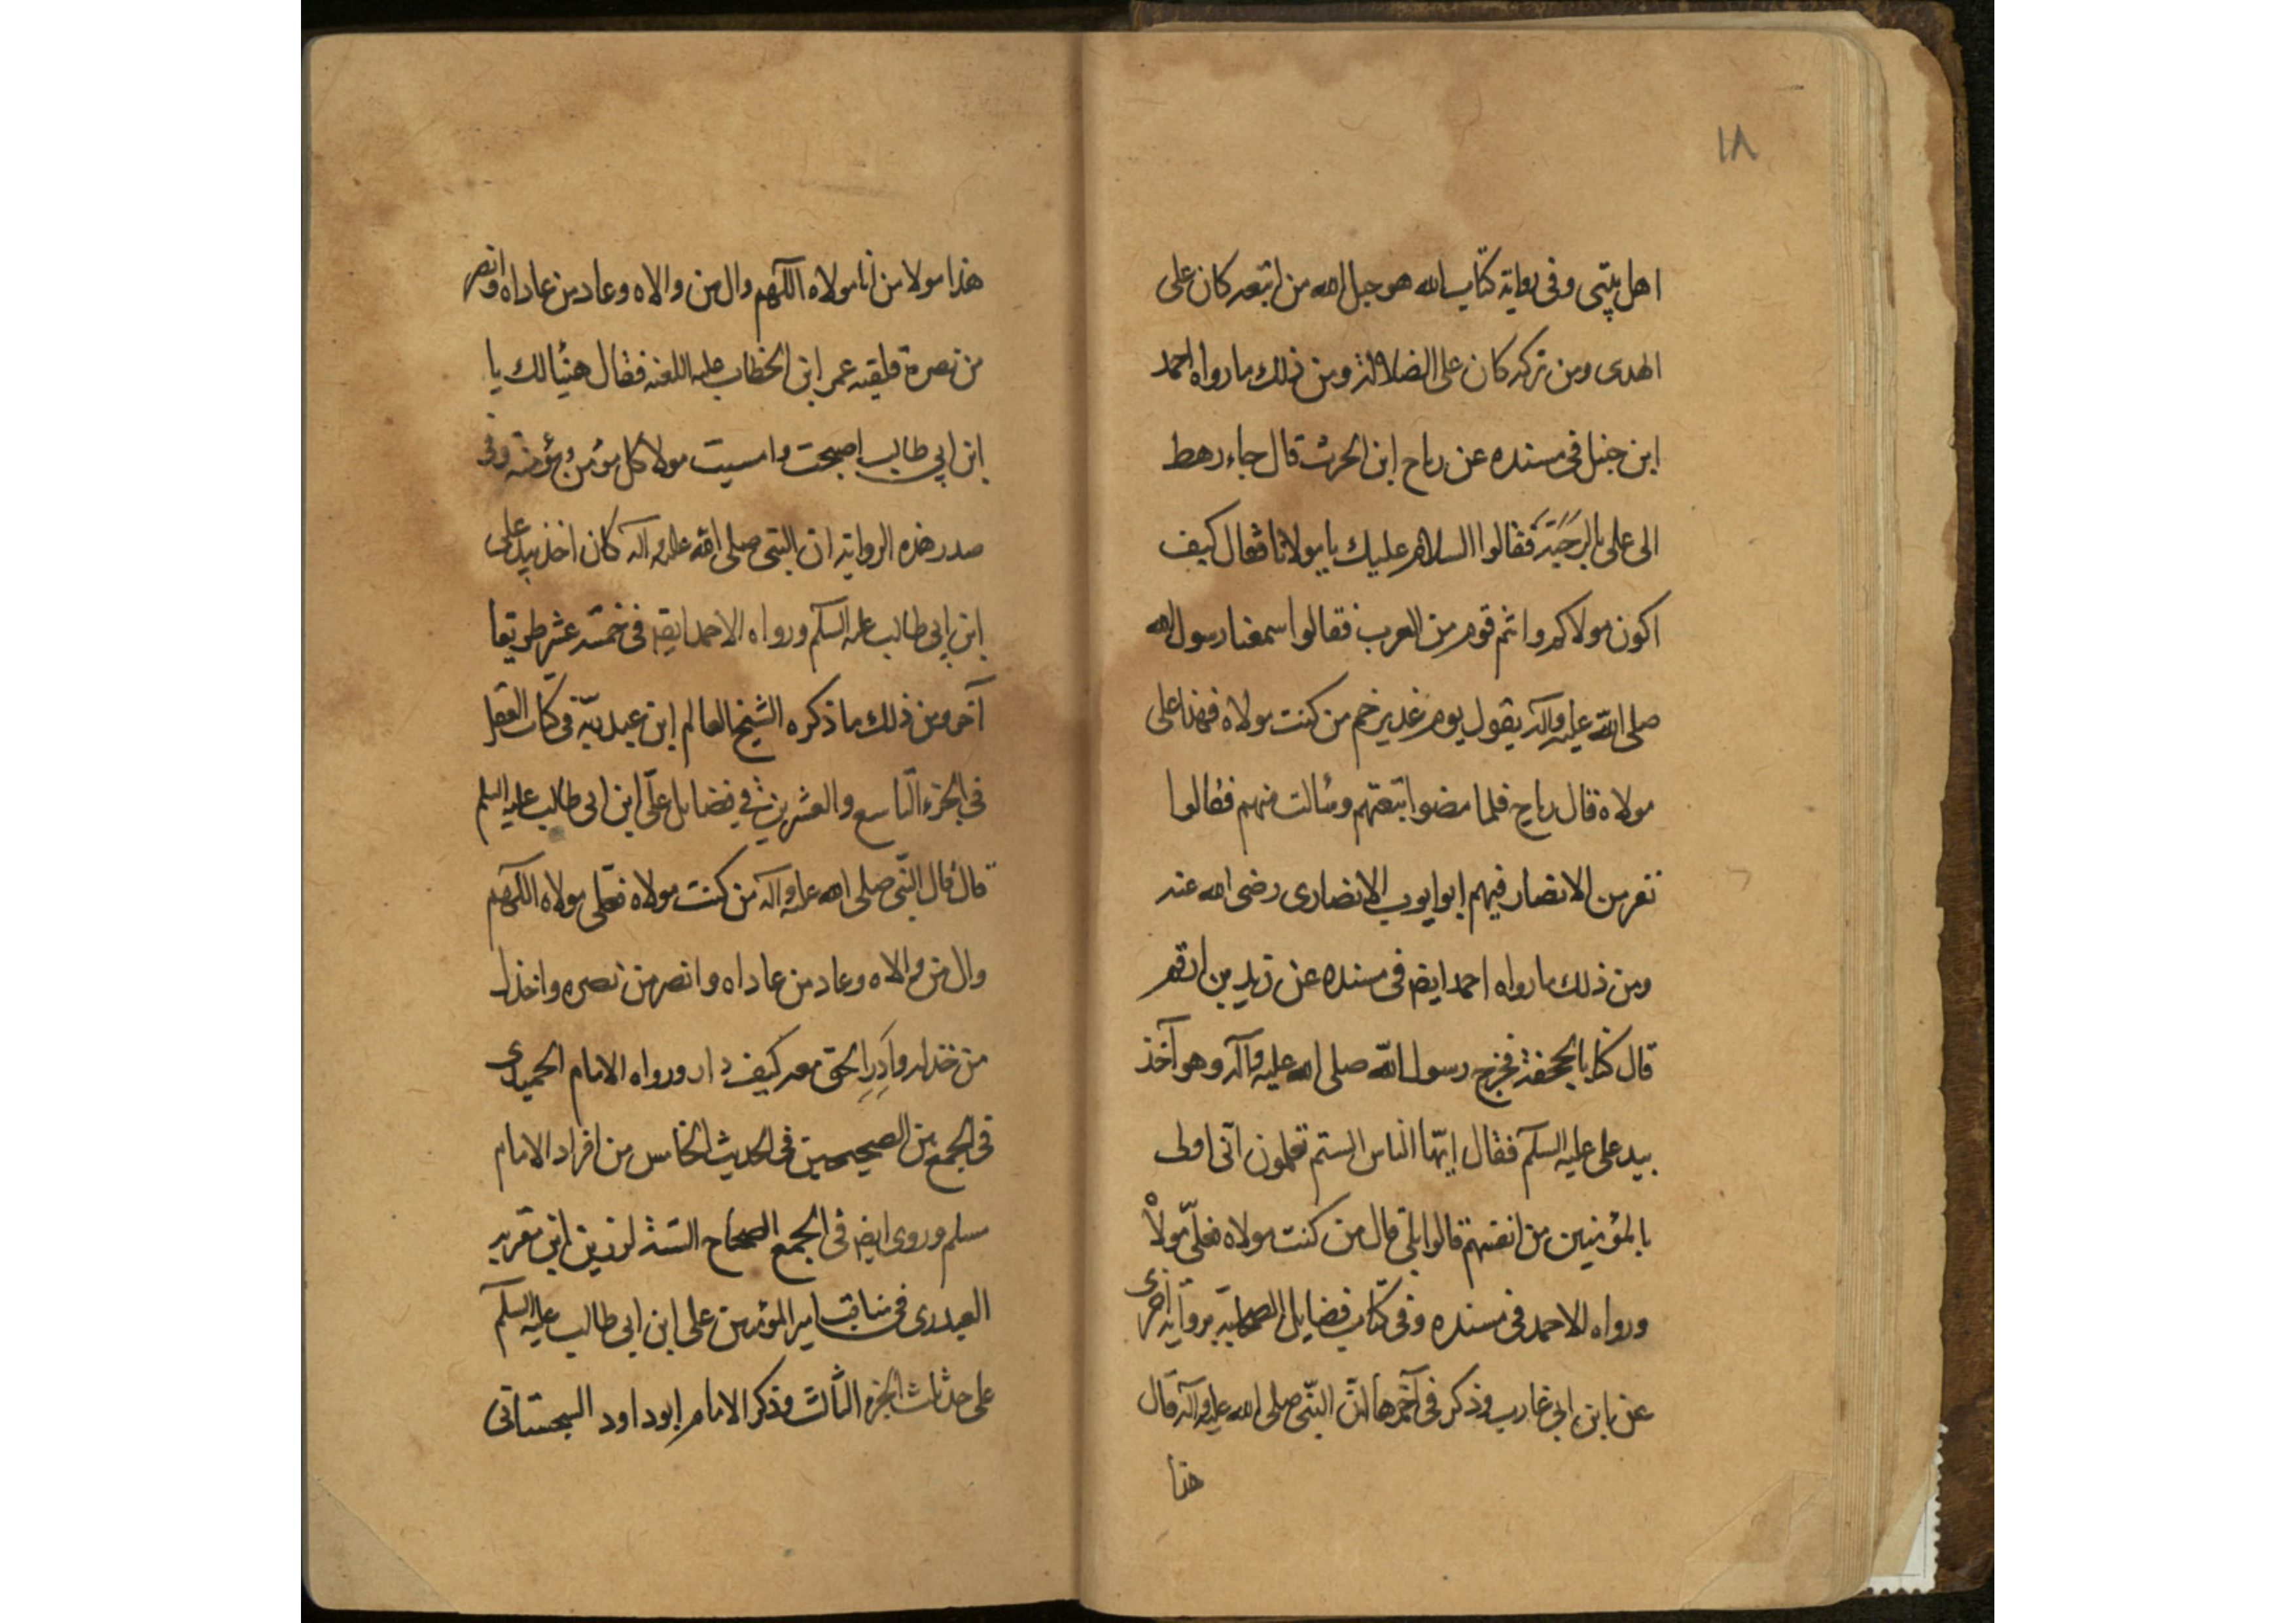 ١٨
اهل بيتى وفى رواية كتاب الله هو حبل الله من اتبعه كان على
الهدى ومن تركه كان على الضلالة ومن ذلك ما رواه احمد
ابن حنبل فى مسنده عن رياح ابن الحرث قال جاء رهط
الى على بالرحبة فقالوا السلام عليك يا مولانا فقال كيف
اكون مولاكم وانتم قوم من العرب فقالوا سمعنا رسول الله
صلى الله عليه وآله يقول يوم غدير خم من كنت مولاه فهذا على
مولاه قال رياح فلما مضوا اتبعتهم وسالت منهم فقالوا
نفر من الانصار فيهم ابو ايوب الانصارى رضى الله عنه
ومن ذلك ما رواه احمد ايضا فى مسنده عن زيد بن ارقم
قال كنا بالجحفة فخرج رسول الله صلى الله عليه وآله وهو آخذ
بيد على عليه السلم فقال ايها الناس الستم تعلمون انى اولى
بالمؤمنين من انفسهم قالوا بلى قال من كنت مولاه فعلى مولاه
ورواه الاحمد فى مسنده وفى كتاب فضايل الصحابة برواية اخرى
عن ابن ابى عازب وذكر فى آخرها ان النبى صلى الله عليه وآله قال
هذا
هذا مولا من انا مولاه اللهم وال من والاه وعاد من عاداه وانصر
من نصره فلقيه عمر ابن الخطاب عليه اللعنه فقال هنيا لك يا
ابن ابي طالب اصبحت وامسيت مولا كل مؤمن ومؤمنه وفى
صدر هذه الرواية ان النبى صلى الله عليه وآله كان اخذ بيد على
ابن ابى طالب عليه السلم ورواه الاحمد ايضا فى خمسة عشر طريقا
آخر ومن ذلك ما ذكره الشيخ العالم ابن عبد ربه فى كتاب العقد
فى الجزء التاسع والعشرين فى فضايل على ابن ابى طالب عليه السلم
قال قال النبى صلى الله عليه وآله من كنت مولاه فعلى مولاه اللهم
وال من والاه وعاد من عاداه وانصر من نصره واخذل
من خذله وادر الحق معه كيف دار ورواه الامام الحميدى
فى الجمع بين الصحيحين فى الحديث الخامس من افراد الامام
مسلم وروى ايضا فى الجمع الصحاح الستة لرزين ابن
العبدرى فى مناقب امير المؤمنين على ابن ابى طالب عليه السلم
على حد ثلث الجزء الثالث وذكر الامام ابو داود السجستانى